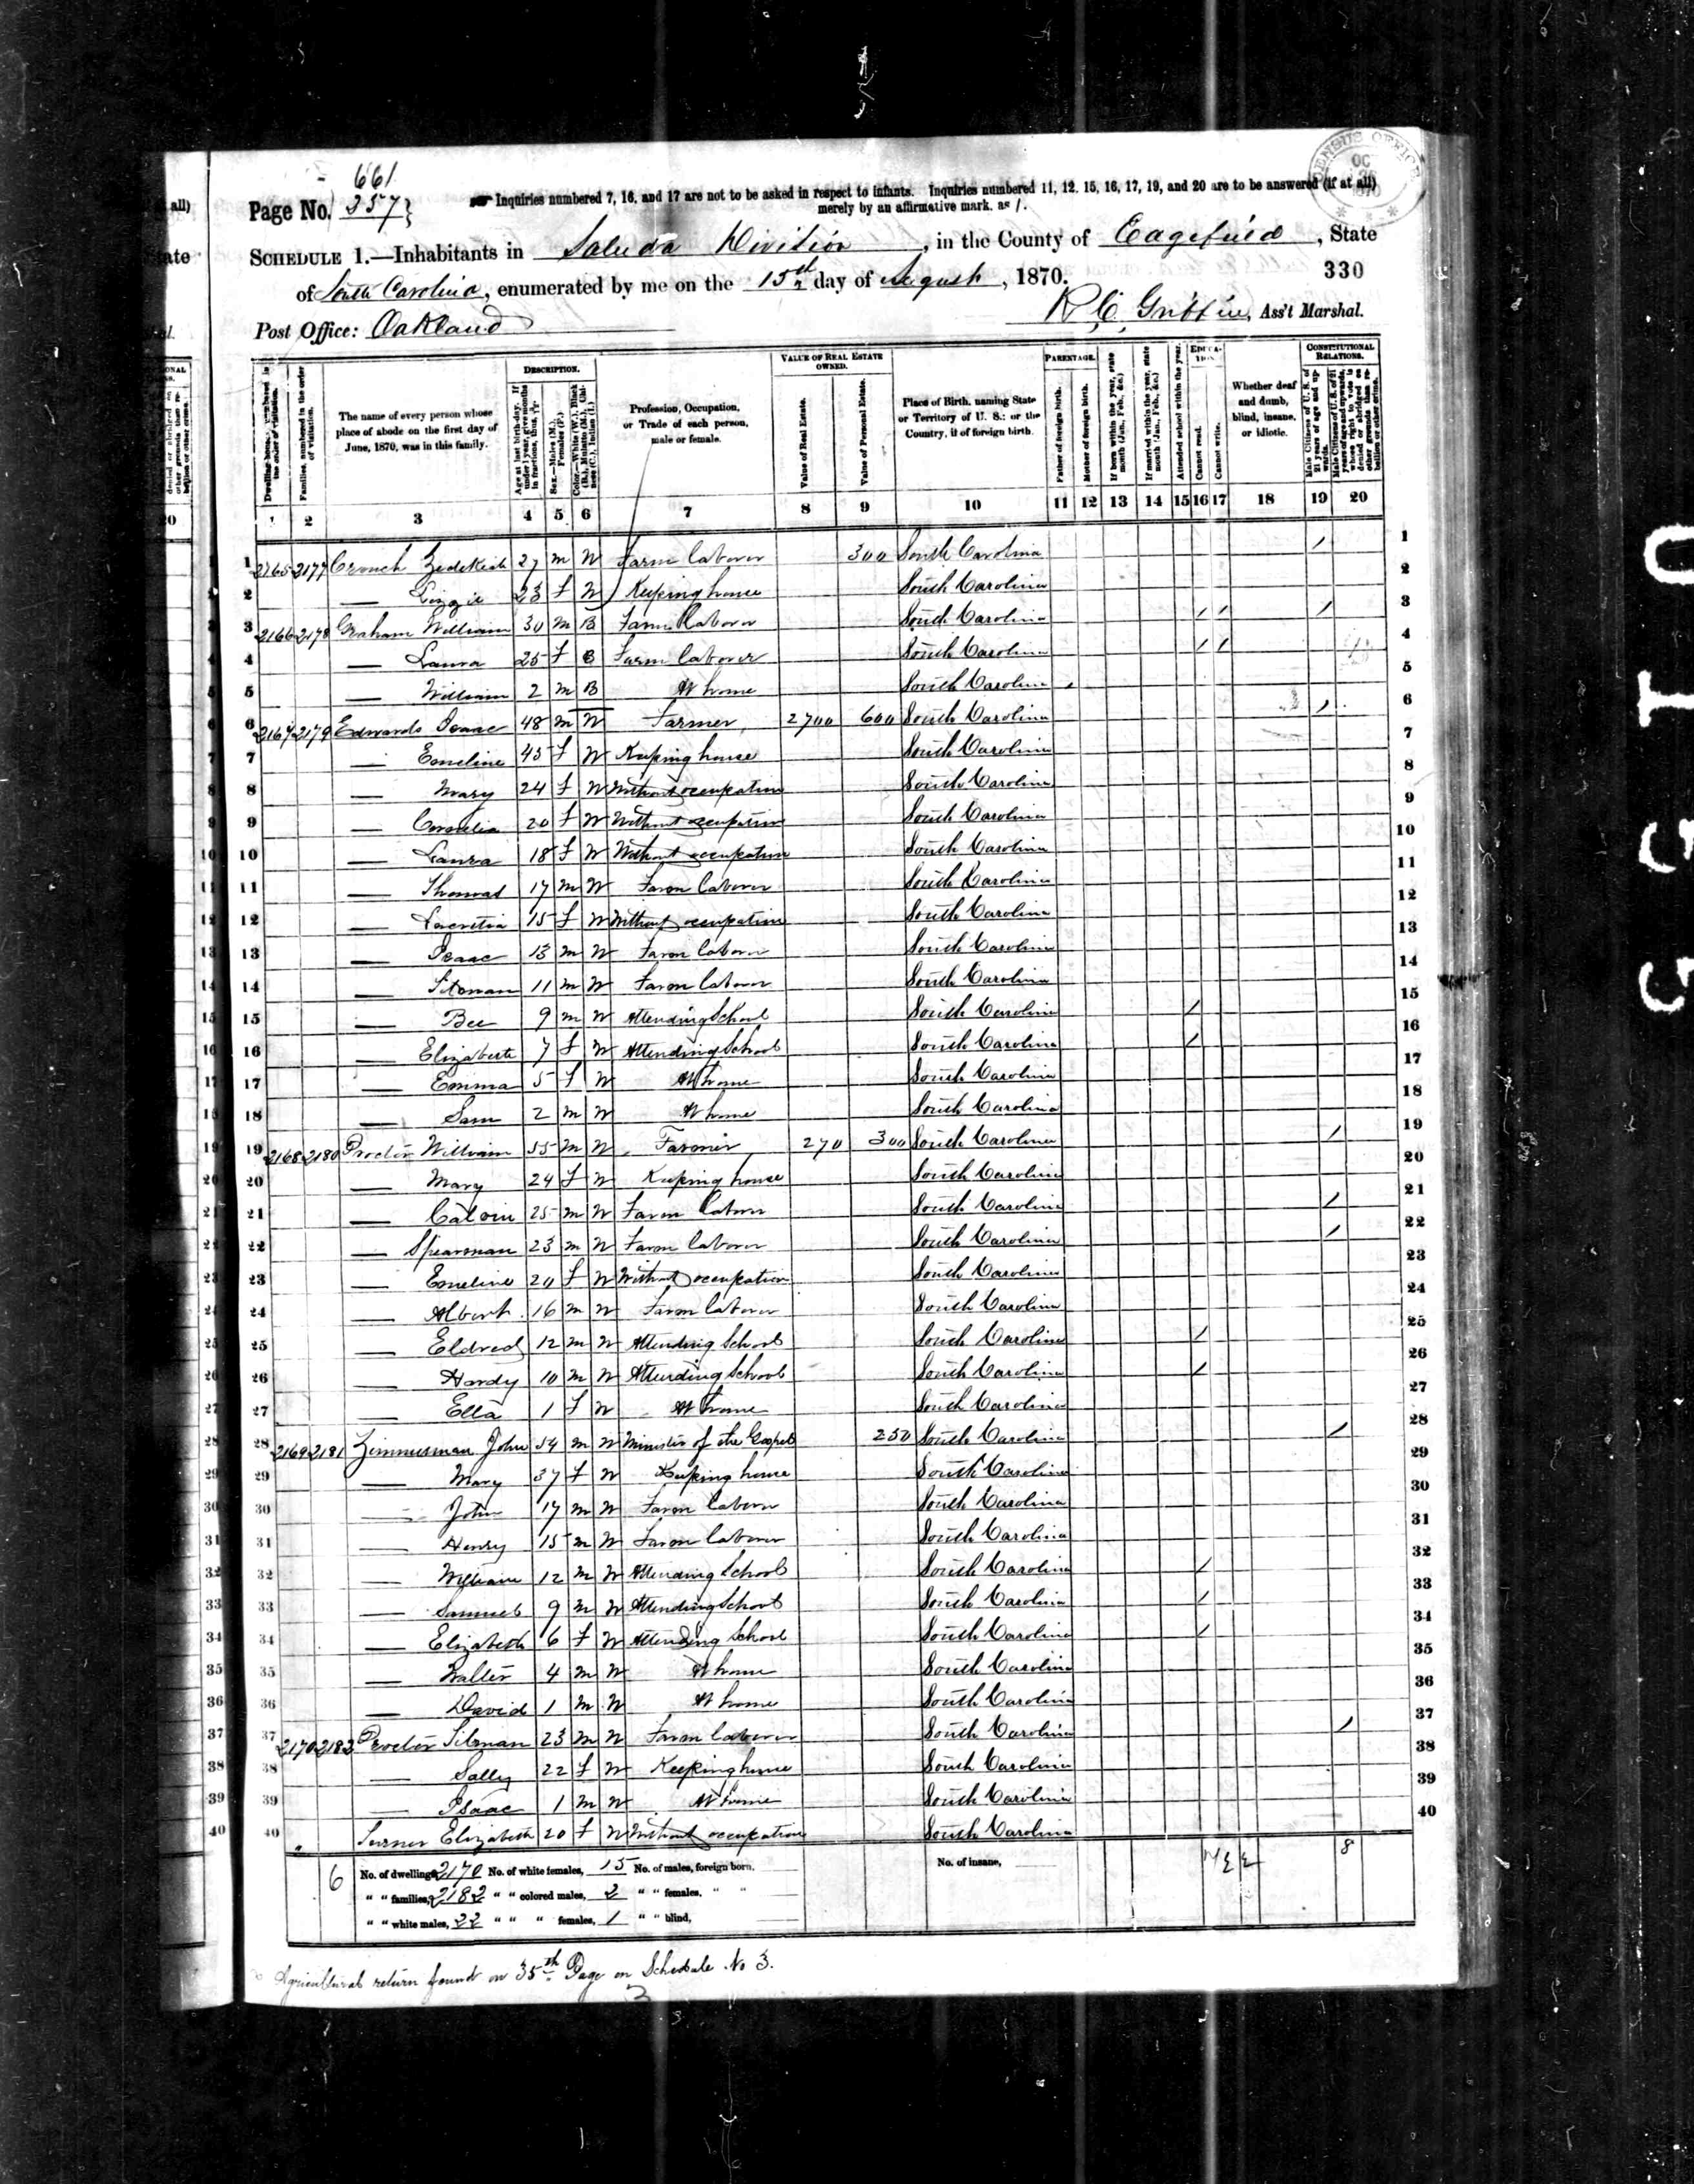 661
Page No. 357
Inquiries numbered 7, 16, and 17 are not to be asked in respect to infants. Inquiries numbered 11, 12, 15, 16, 17, 19, and 20 are to be answered (if at all)
merely by an affirmative mark, as /.
SCHEDULE 1.—Inhabitants in Saluda Division, in the County of Edgefield, State
of South Carolina, enumerated by me on the 15th day of August, 1870.
330
Post Office: Oakland
R C Griffin, Ass't Marshal.
DESCRIPTION.
VALUE OF REAL ESTATE OWNED.
PARENTAGE.
EDUCATION.
CONSTITUTIONAL RELATIONS.
The name of every person whose place of abode on the first day of June, 1870, was in this family.
Profession, Occupation, or Trade of each person, male or female.
Value of Real Estate.
Value of Personal Estate.
Place of Birth, naming State or Territory of U. S.; or the Country, if of foreign birth.
Father of foreign birth.
Mother of foreign birth.
Attended school within the year.
Cannot read.
Cannot write.
Whether deaf and dumb, blind, insane, or idiotic.
1 2 3 4 5 6 7 8 9 10 11 12 13 14 15 16 17 18 19 20
1 2165 2177 Crouch Zedekiah 27 m W Farm laborer 300 South Carolina / 1
2 — Lizzie 23 f W Keeping house South Carolina 2
3 2166 2178 Graham William 30 m B Farm laborer South Carolina / / / 3
4 — Laura 25 f B Farm laborer South Carolina / / 4
5 — William 2 m B At home South Carolina 5
6 2167 2179 Edwards Isaac 48 m W Farmer 2700 600 South Carolina / 6
7 — Emeline 45 f W Keeping house South Carolina 7
8 — Mary 24 f W Without occupation South Carolina 8
9 — Cornelia 20 f W Without occupation South Carolina 9
10 — Laura 18 f W Without occupation South Carolina 10
11 — Thomas 17 m W Farm laborer South Carolina 11
12 — Lucretia 15 f W Without occupation South Carolina 12
13 — Isaac 13 m W Farm laborer South Carolina 13
14 — Tilman 11 m W Farm laborer South Carolina 14
15 — Bee 9 m W Attending School South Carolina / 15
16 — Elizabeth 7 f W Attending School South Carolina / 16
17 — Emma 5 f W At home South Carolina 17
18 — Sam 2 m W At home South Carolina 18
19 2168 2180 Proctor William 55 m W Farmer 270 300 South Carolina / 19
20 — Mary 24 f W Keeping house South Carolina 20
21 — Calvin 25 m W Farm laborer South Carolina / 21
22 — Spearman 23 m W Farm laborer South Carolina / 22
23 — Emeline 20 f W Without occupation South Carolina 23
24 — Albert 16 m W Farm laborer South Carolina 24
25 — Eldred 12 m W Attending School South Carolina / 25
26 — Hardy 10 m W Attending School South Carolina / 26
27 — Ella 1 f W At home South Carolina 27
28 2169 2181 Zimmerman John 54 m W Minister of the Gospel 250 South Carolina / 28
29 — Mary 37 f W Keeping house South Carolina 29
30 — John 17 m W Farm laborer South Carolina 30
31 — Henry 15 m W Farm laborer South Carolina 31
32 — William 12 m W Attending School South Carolina / 32
33 — Samuel 9 m W Attending School South Carolina / 33
34 — Elizabeth 6 f W Attending School South Carolina / 34
35 — Walter 4 m W At home South Carolina 35
36 — David 1 m W At home South Carolina 36
37 2170 2182 Proctor Tilman 23 m W Farm laborer South Carolina / 37
38 — Sally 22 f W Keeping house South Carolina 38
39 — Isaac 1 m W At home South Carolina 39
40 Turner Elizabeth 20 f W Without occupation South Carolina 40
6 No. of dwellings, 2170 No. of white females, 15 No. of males, foreign born, No. of insane, 8
" " families, 2182 " " colored males, 2 " " females, " "
" " white males, 22 " " " females, 1 " " blind,
Agricultural return found on 35th Page on Schedule No 3.